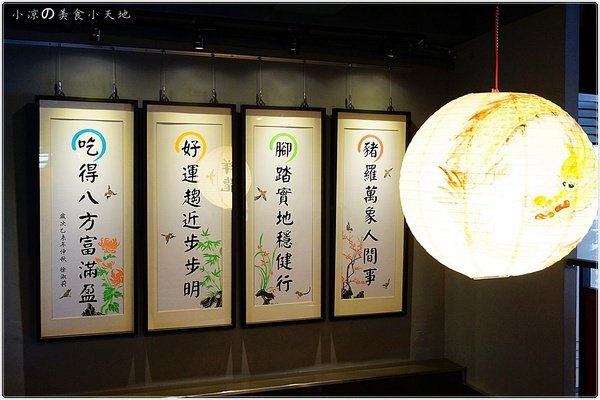 小涼の美食小天地
豬羅萬象人間事
腳踏實地穩健行
好運趨近步步明
吃得八方富滿盈
歲次乙未年仲秋 徐淑莉